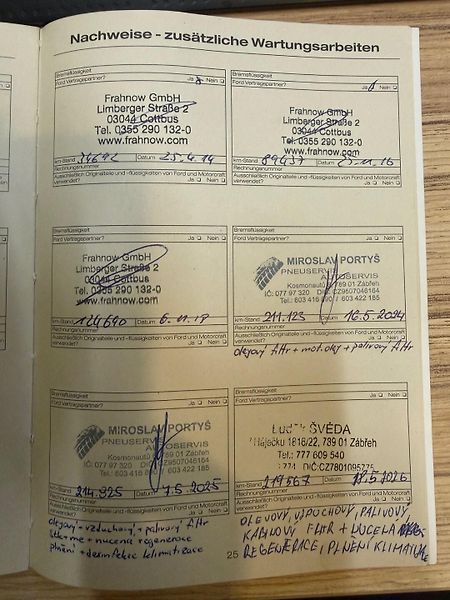 Nachweise - zusätzliche Wartungsarbeiten
Bremsflüssigkeit
Ford Vertragspartner? Ja Nein
Frahnow GmbH
Limberger Straße 2
03044 Cottbus
Tel. 0355 290 132-0
www.frahnow.com
km-Stand 34692 Datum 25.4.14
Rechnungsnummer
Ausschließlich Originalteile und -flüssigkeiten von Ford und Motorcraft
verwendet? Ja Nein
Bremsflüssigkeit
Ford Vertragspartner? Ja Nein
Frahnow GmbH
Limberger Straße 2
03044 Cottbus
Tel. 0355 290 132-0
www.frahnow.com
km-Stand 89437 Datum 11.16
Rechnungsnummer
Ausschließlich Originalteile und -flüssigkeiten von Ford und Motorcraft
verwendet? Ja Nein
Bremsflüssigkeit
Ford Vertragspartner? Ja Nein
Frahnow GmbH
Limberger Straße 2
03044 Cottbus
Tel. 0355 290 132-0
www.frahnow.com
km-Stand 124690 Datum 6.11.18
Rechnungsnummer
Ausschließlich Originalteile und -flüssigkeiten von Ford und Motorcraft
verwendet? Ja Nein
Bremsflüssigkeit
Ford Vertragspartner? Ja Nein
MIROSLAV PORTYŠ
PNEUSERVIS AUTOSERVIS
Kosmonautů 789 01 Zábřeh
IČ: 077 97 320 DIČ:CZ9507046164
Tel.: 603 416 / 603 422 185
km-Stand 211.123 Datum 16.5.2024
Rechnungsnummer
Ausschließlich Originalteile und -flüssigkeiten von Ford und Motorcraft
verwendet? Ja Nein
olejový filtr + mot. olej + palivový filtr
Bremsflüssigkeit
Ford Vertragspartner? Ja Nein
MIROSLAV PORTYŠ
PNEUSERVIS AUTOSERVIS
Kosmonautů 789 01 Zábřeh
IČ: 077 97 320 DIČ:CZ9507046164
Tel.: 603 416 603 422 185
km-Stand 214.925 Datum 7.5.2025
Rechnungsnummer
Ausschließlich Originalteile und -flüssigkeiten von Ford und Motorcraft
verwendet? Ja Nein
olejový + vzduchový + palivový filtr
+ nucená regenerace
plnění + dezinfekce klimatizace
Bremsflüssigkeit
Ford Vertragspartner? Ja Nein
Luděk ŠVÉDA
Háječku 1818/22, 789 01 Zábřeh
Tel.: 777 609 540
DIČ:CZ7801095275
km-Stand 219567 Datum 18.5.2026
Rechnungsnummer
Ausschließlich Originalteile und -flüssigkeiten von Ford und Motorcraft
verwendet? Ja Nein
OLEJOVÝ, VZDUCHOVÝ, PALIVOVÝ,
KABINOVÝ FILTR + NUCENÁ
REGENERACE, PLNĚNÍ KLIMATIZACE
25